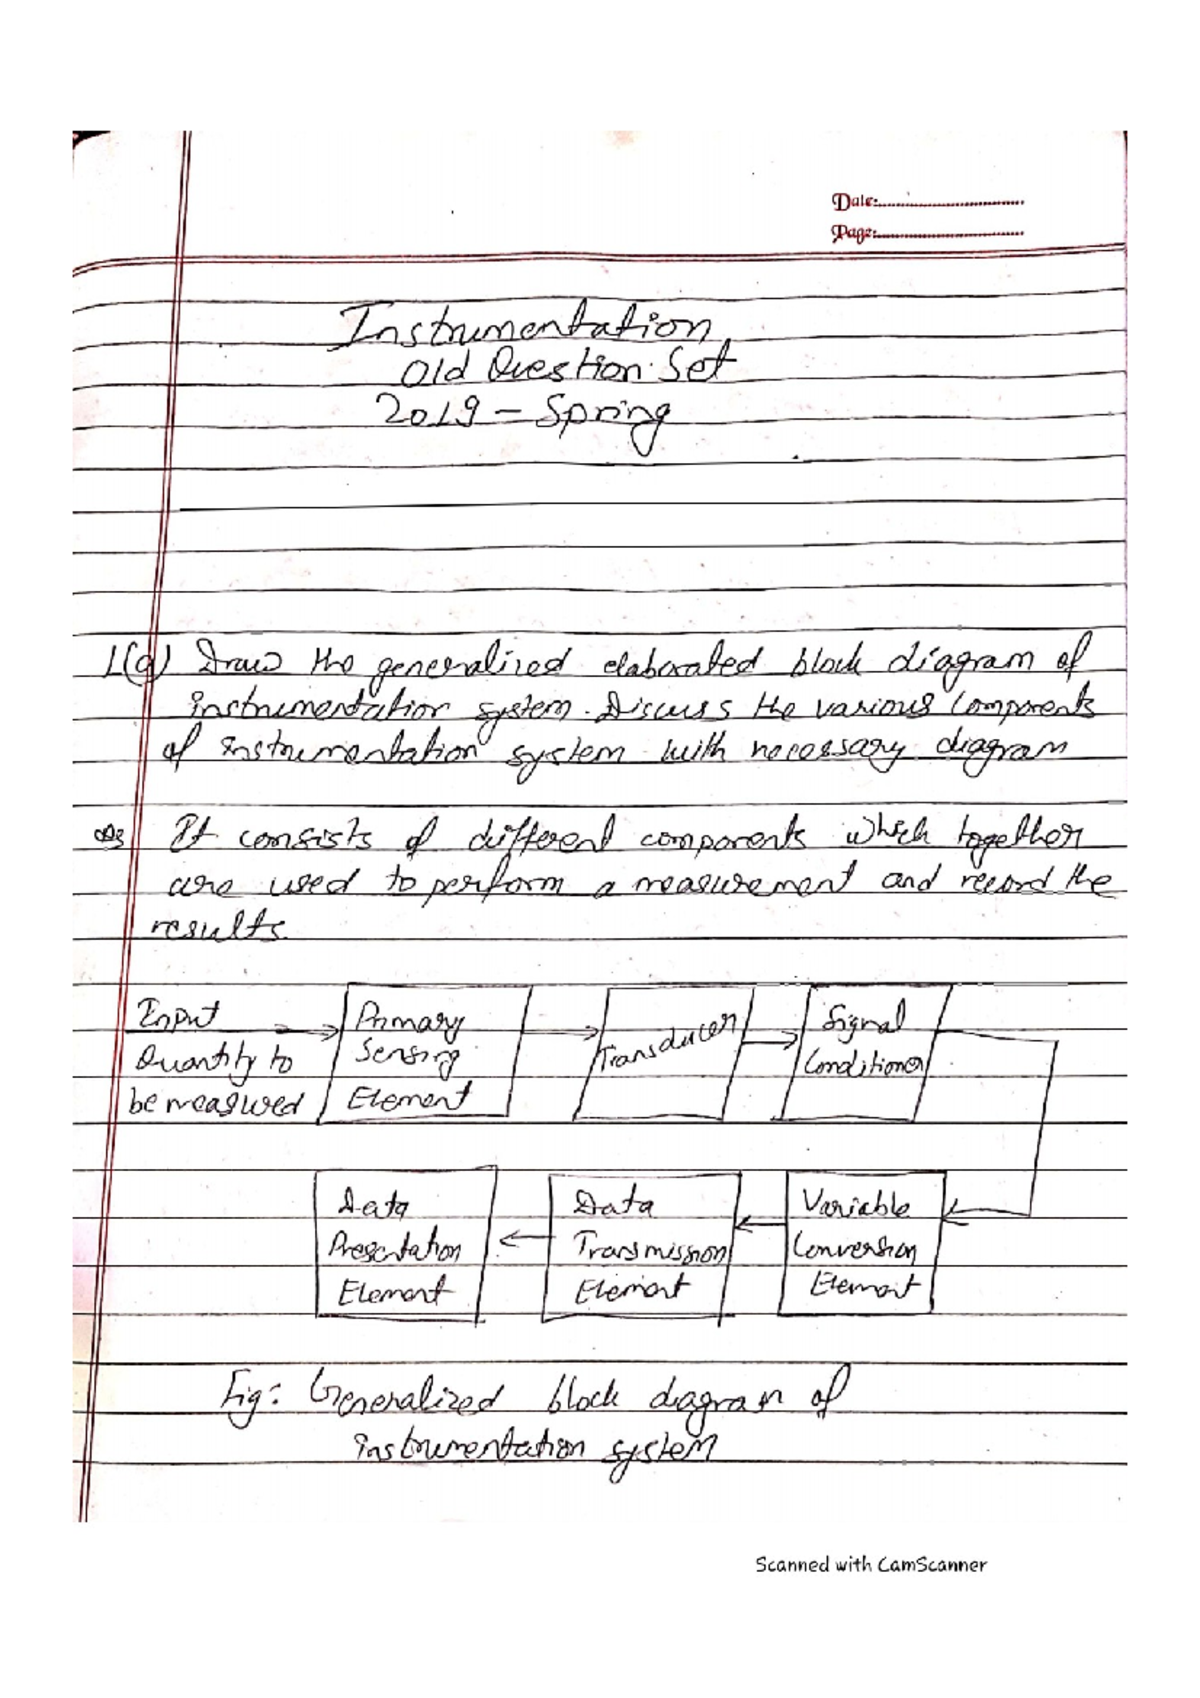 Date:
Page:
Instrumentation
Old Question Set
2019 - Spring
1.(a) Draw the generalized elaborated block diagram of
instrumentation system. Discuss the various components
of instrumentation system with necessary diagram
Ans It consists of different components which together
are used to perform a measurement and record the
results.
Input
Quantity to
be measured
Primary
Sensing
Element
Transducer
Signal
Conditioner
Data
Presentation
Element
Data
Transmission
Element
Variable
Conversion
Element
Fig: Generalized block diagram of
instrumentation system
Scanned with CamScanner